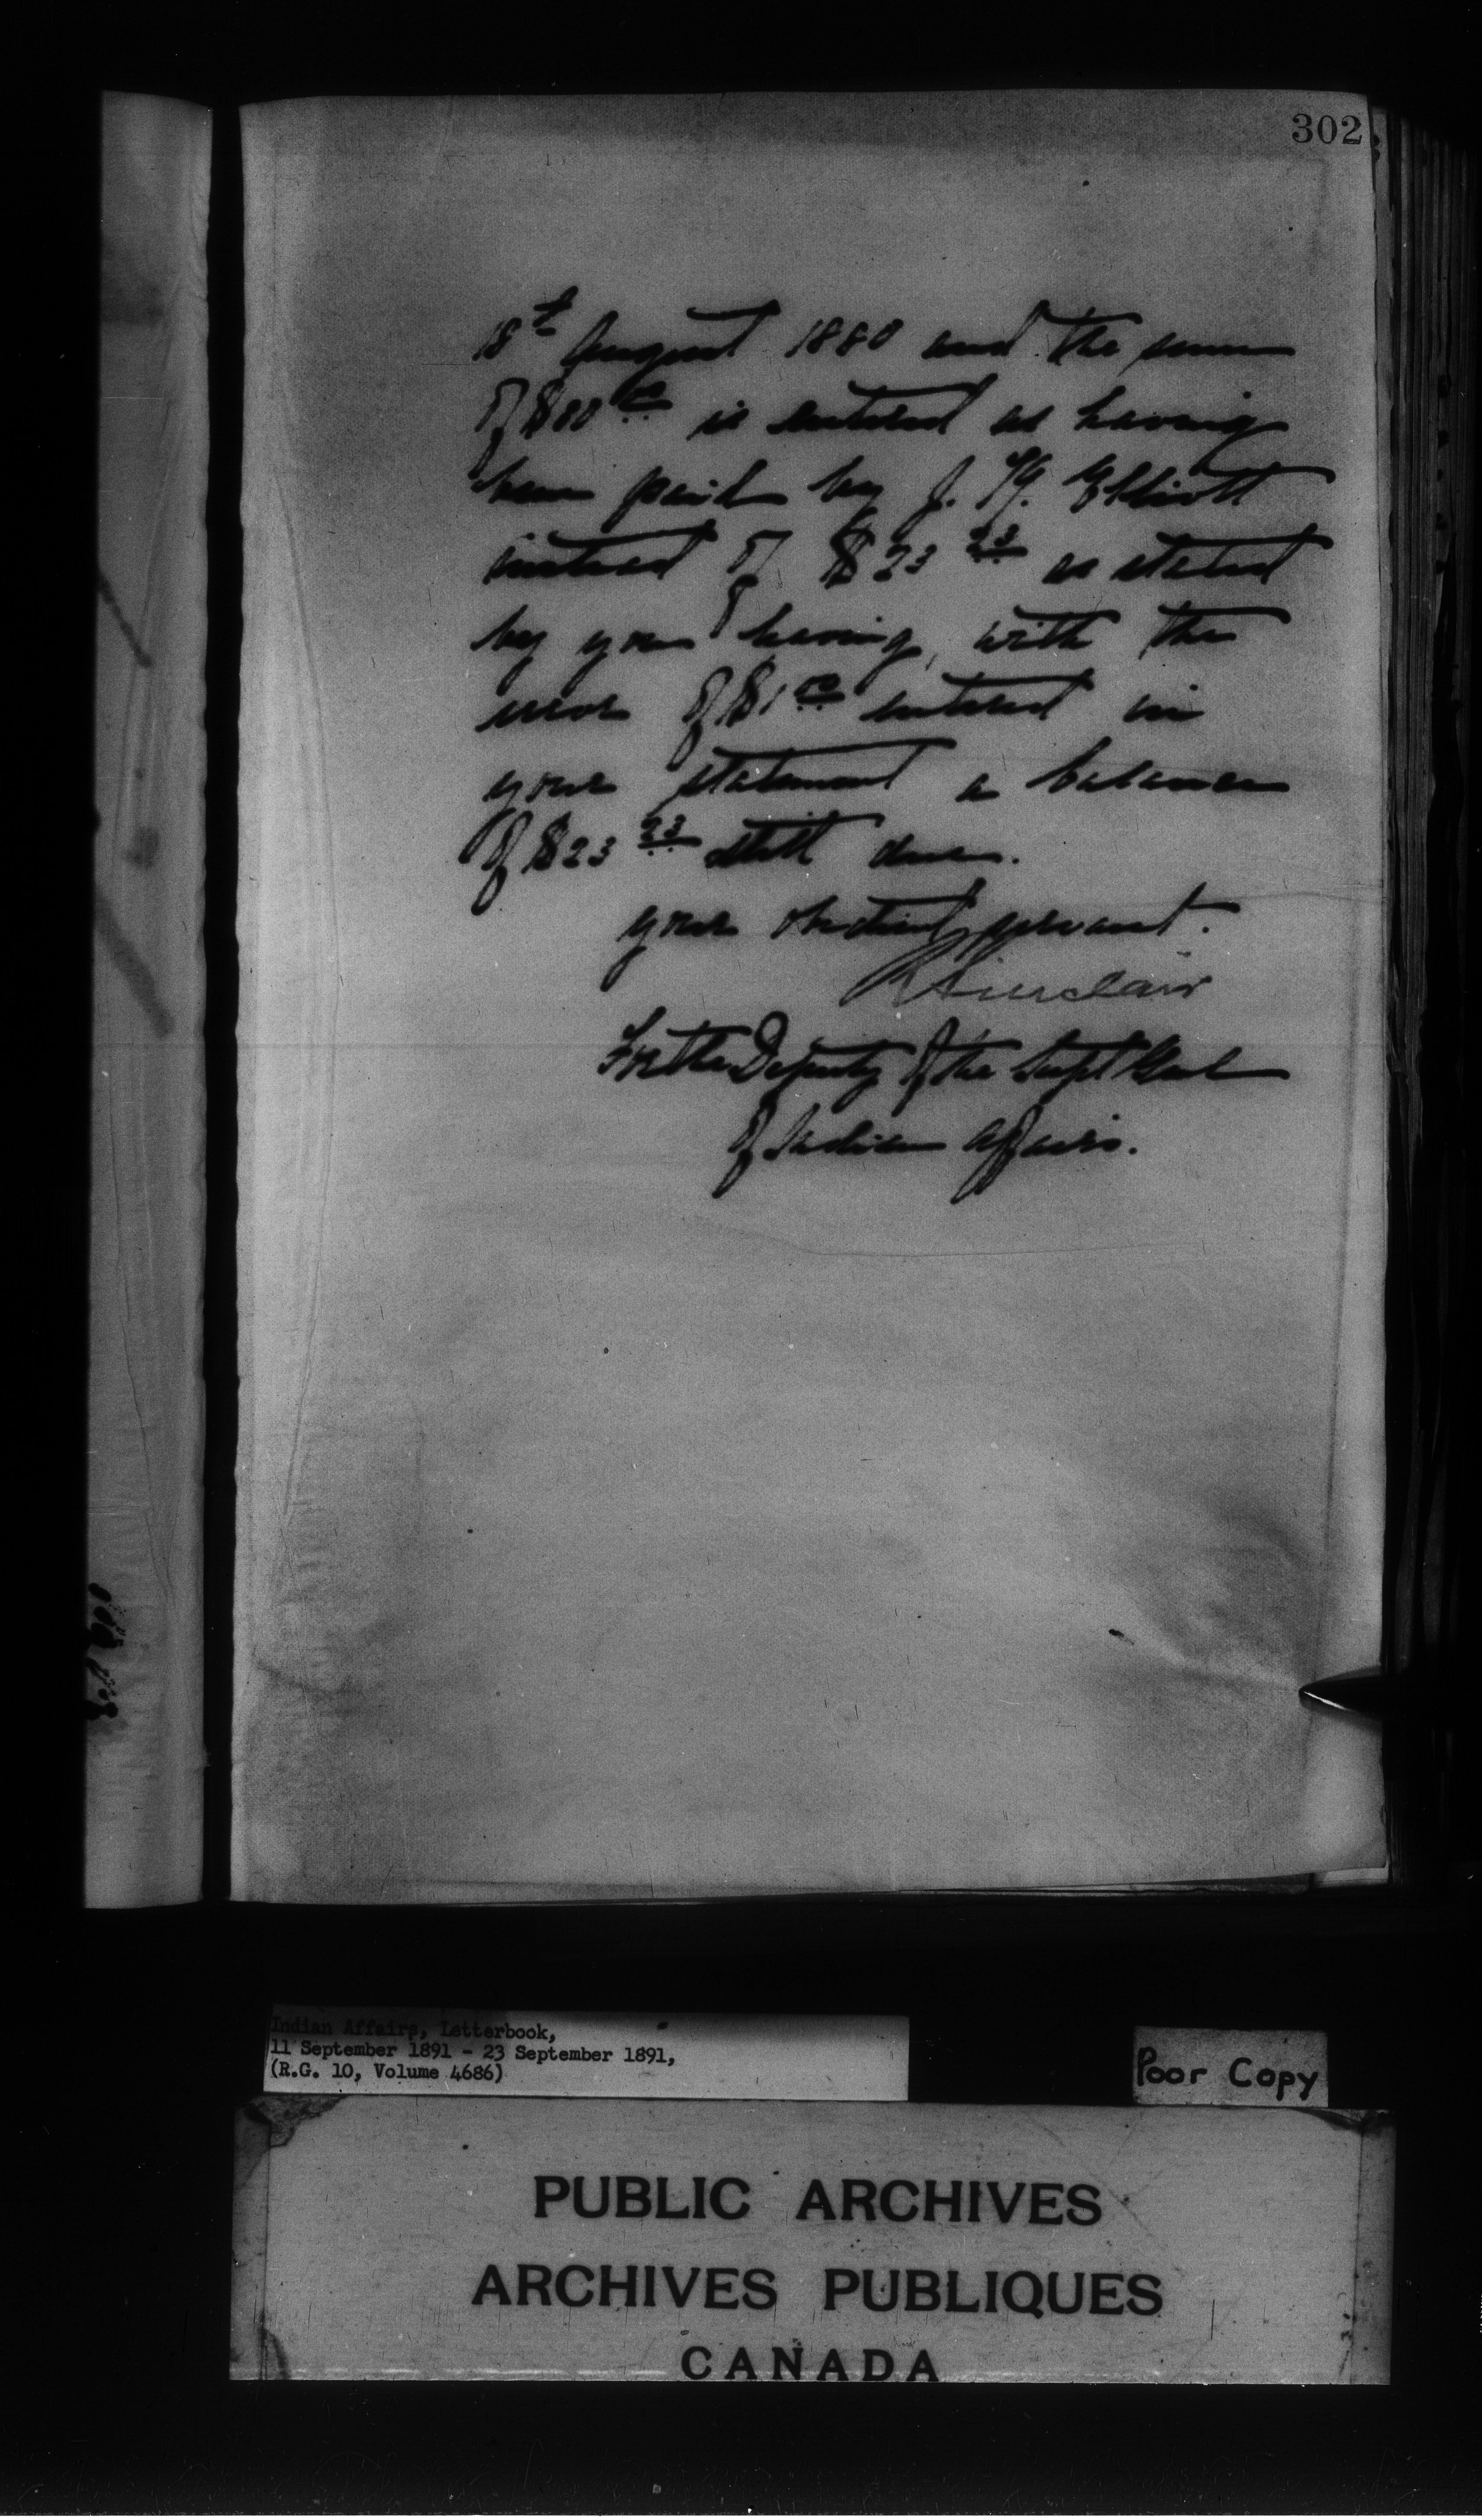 302
18th August 1880 and the sum
of $ is entered as having
been paid by J. H. Elliott
instead of $23 23 as stated
by you leaving, with the
error of $1 00 entered in
your statement a balance
of $23 23 still due.
your obedient servant.
R Sinclair
For the Deputy of the Supt Genl
of Indian Affairs.
Indian Affairs, Letterbook,
11 September 1891 - 23 September 1891,
(R.G. 10, Volume 4686)
Poor Copy
PUBLIC ARCHIVES
ARCHIVES PUBLIQUES
CANADA